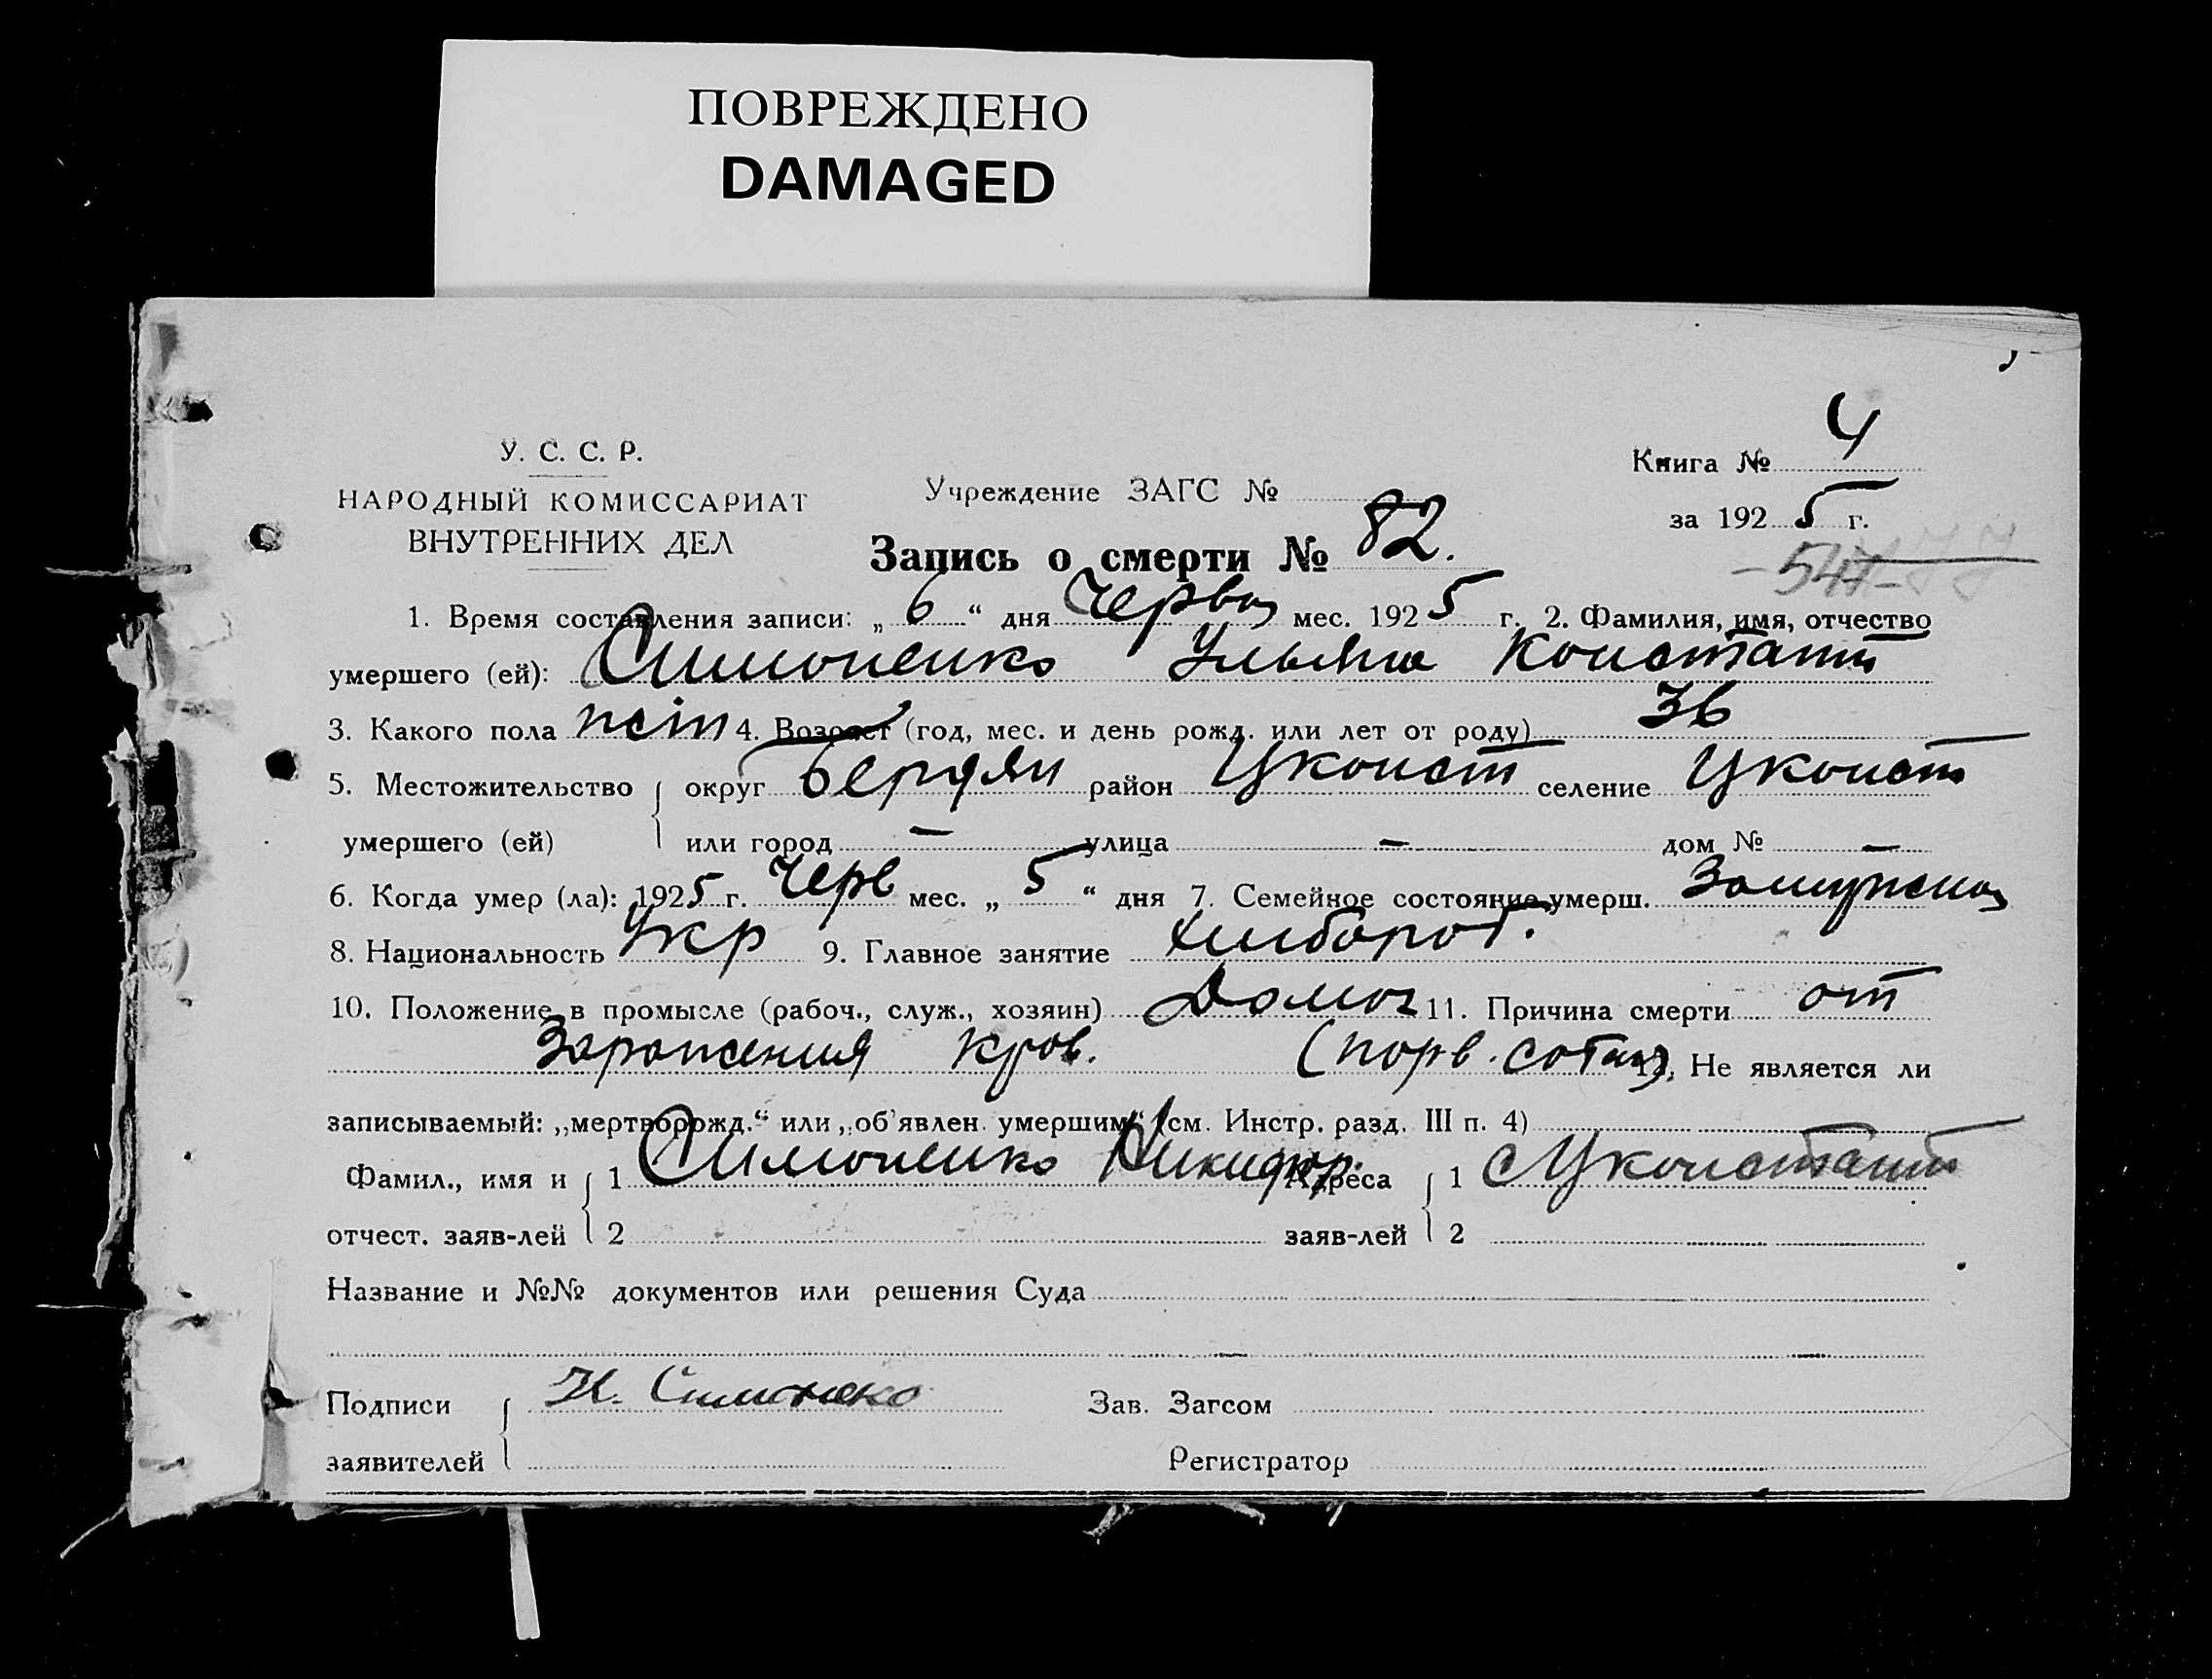 ПОВРЕЖДЕНО
DAMAGED
У. С. С. Р.
НАРОДНЫЙ КОМИССАРИАТ
ВНУТРЕННИХ ДЕЛ
Учреждение ЗАГС №
Книга № 4
за 1925 г.
Запись о смерти № 82.
1. Время составления записи: „ 6 “ дня Червня мес. 1925 г. 2. Фамилия, имя, отчество
умершего (ей): Симоненко Ульяна Констант
3. Какого пола 4. Возраст (год, мес. и день рожд. или лет от роду) 36
5. Местожительство округ Бердян район Цконст селение Цконст
умершего (ей) или город — улица — дом № —
6. Когда умер (ла): 1925 г. Черв мес. „ 5 “ дня 7. Семейное состояние умерш. Замужна
8. Национальность Укр 9. Главное занятие хлібороб.
10. Положение в промысле (рабоч., служ., хозяин) 11. Причина смерти от
Заражения кров. Не является ли
записываемый: „мертворожд.“ или „об'явлен умершим“ (см. Инстр. разд. III п. 4)
Фамил., имя и 1 Симоненко Никифор. Адреса 1 с Цконстант
отчест. заяв-лей 2 заяв-лей 2
Название и №№ документов или решения Суда
Подписи Н. Симоненко Зав. Загсом
заявителей Регистратор